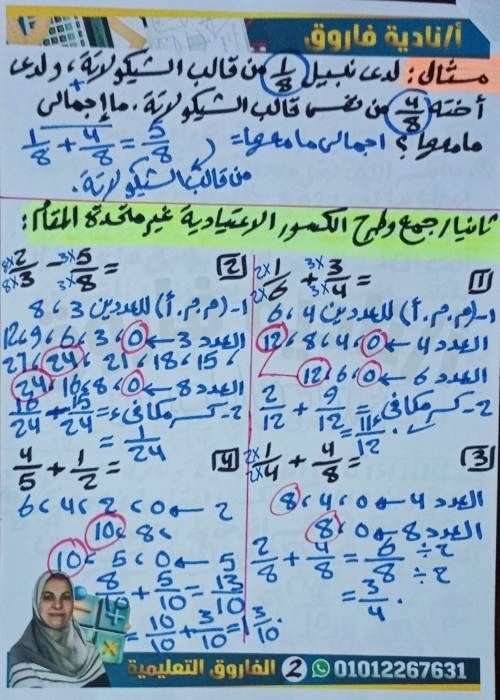 أ/نادية فاروق
مثال: لدى نبيل 1/8 من قالب الشيكولاتة، ولدى
أخته 4/8 من نفس قالب الشيكولاتة. ما إجمالى
ما معها؟ اجمالى ما معها = 1/8 + 4/8 = 5/8
من قالب الشيكولاتة.
ثانيا/ جمع وطرح الكسور الاعتيادية غير متحدة المقام:
1 2× 1/6 2× + 3× 3/4 3× =
1- (م.م.أ) للعددين 4، 6
العدد 4 ← 0، 4، 8، 12
العدد 6 ← 0، 6، 12
2- كسر مكافئ = 2/12 + 9/12
= 11/12.
2 8× 2/3 8× − 3× 5/8 3× =
1- (م.م.أ) للعددين 3، 8
العدد 3 ← 0، 3، 6، 9، 12
15، 18، 21، 24، 27
العدد 8 ← 0، 8، 16، 24
2- كسر مكافئ = 16/24 − 15/24
= 1/24
3 2× 1/4 2× + 4/8 =
العدد 4 ← 0، 4، 8
العدد 8 ← 0، 8
2/8 + 4/8 = 6/8 ÷2 ÷2
= 3/4.
4 4/5 + 1/2 =
2 ← 0، 2، 4، 6
8، 10
5 ← 0، 5، 10
8/10 + 5/10 = 13/10
= 10/10 + 3/10 = 1 3/10
الفاروق التعليمية 2 01012267631